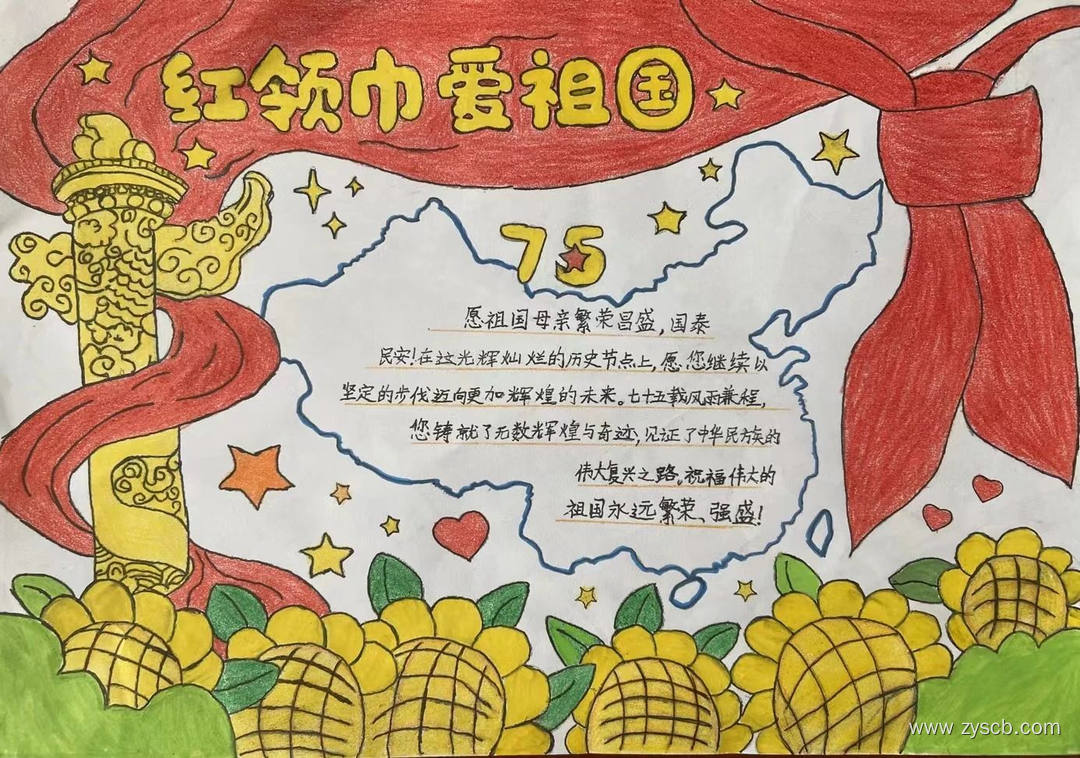 红领巾爱祖国
75
愿祖国母亲繁荣昌盛,国泰
民安!在这光辉灿烂的历史节点上,愿您继续以
坚定的步伐迈向更加辉煌的未来。七十五载风雨兼程,
您铸就了无数辉煌与奇迹,见证了中华民族的
伟大复兴之路。祝福伟大的
祖国永远繁荣、强盛!
www.zyscb.com